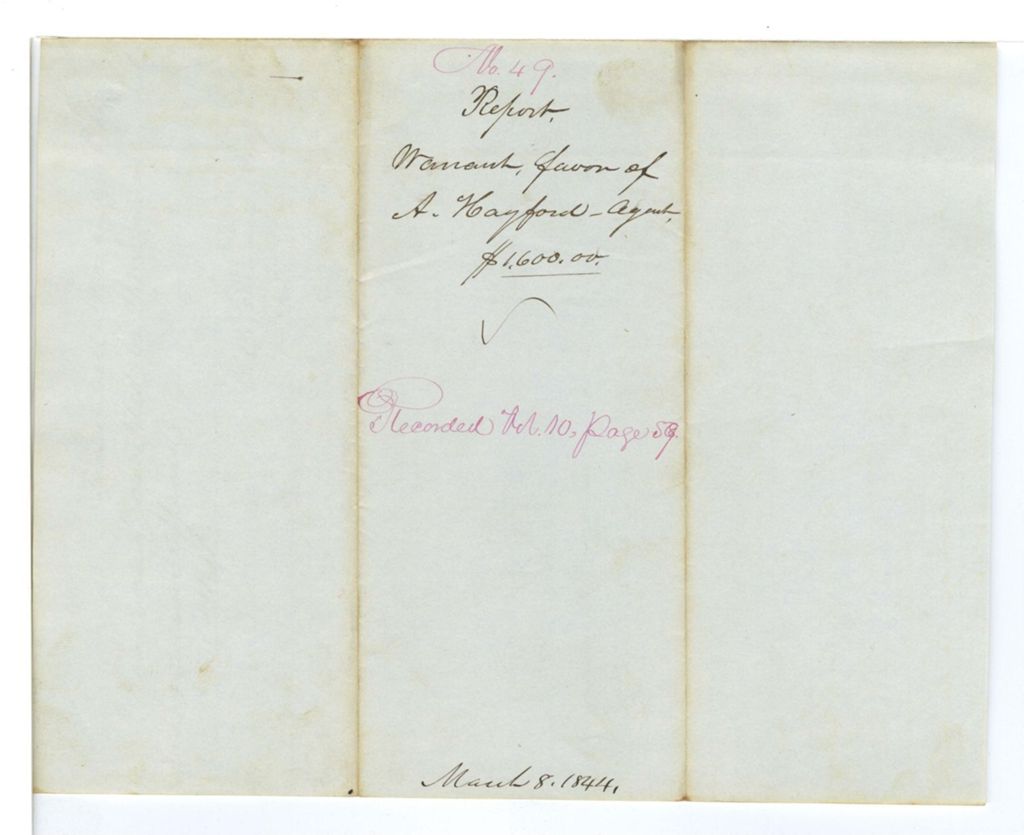 No. 49.
Report.
Warrant, favor of
A. Hayford - Agent,
$1,600.00.
Recorded Vol. 10, Page 59.
March 8. 1844.